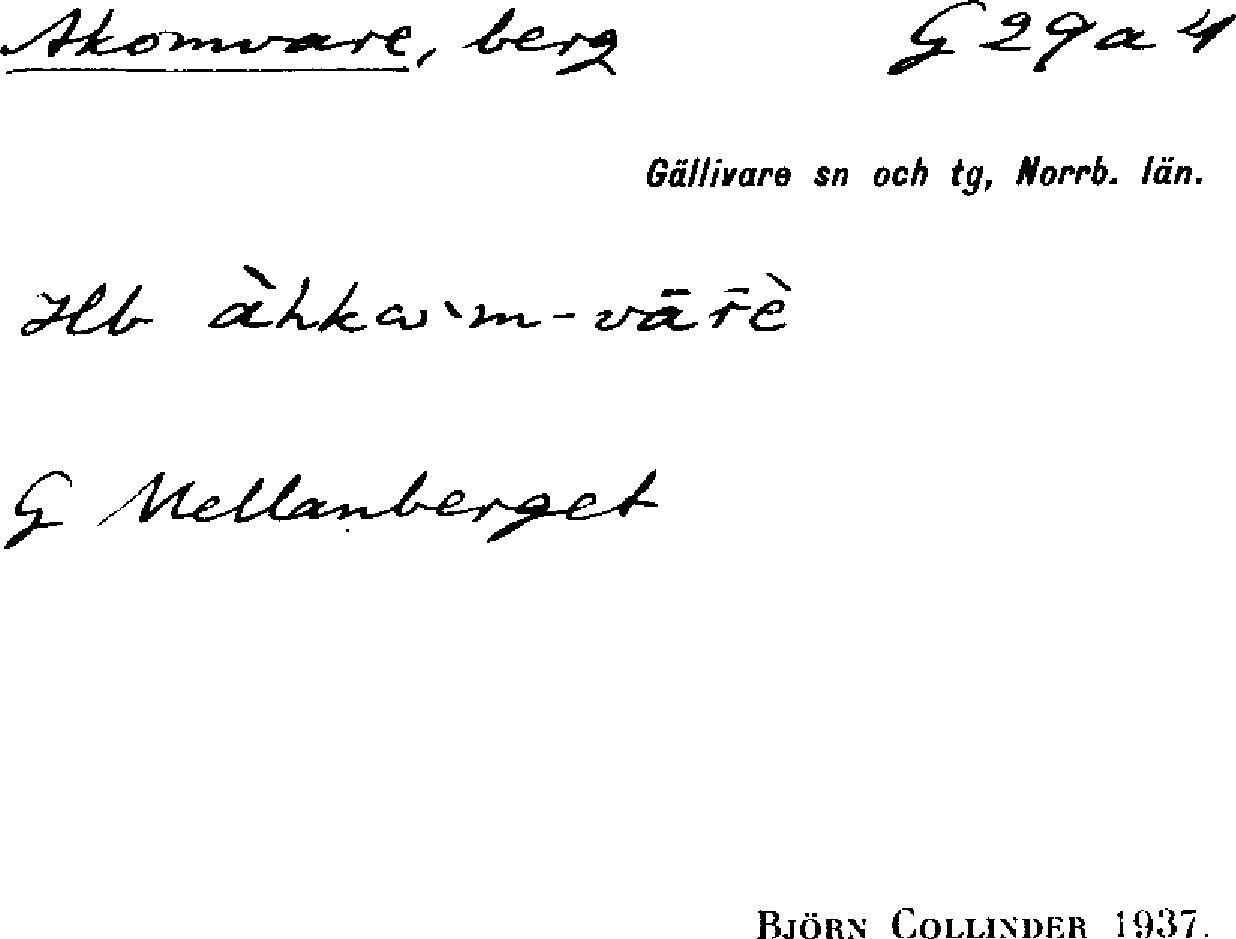 Akomvare, berg G 29 a 4
Gällivare sn och tg, Norrb. län.
Hb àhkaˋm-vār̄è
G Mellanberget
BJÖRN COLLINDER 1937.